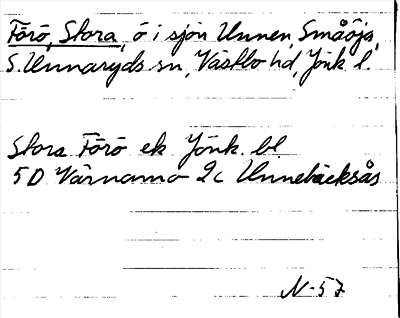 Förö, Stora, ö i sjön Unnen, Småöja,
S. Unnaryds sn, Västbo hd, Jönk l.
Stora Förö ek Jönk. bl
5D Värnamo 2c Unnebäcksås
N-57